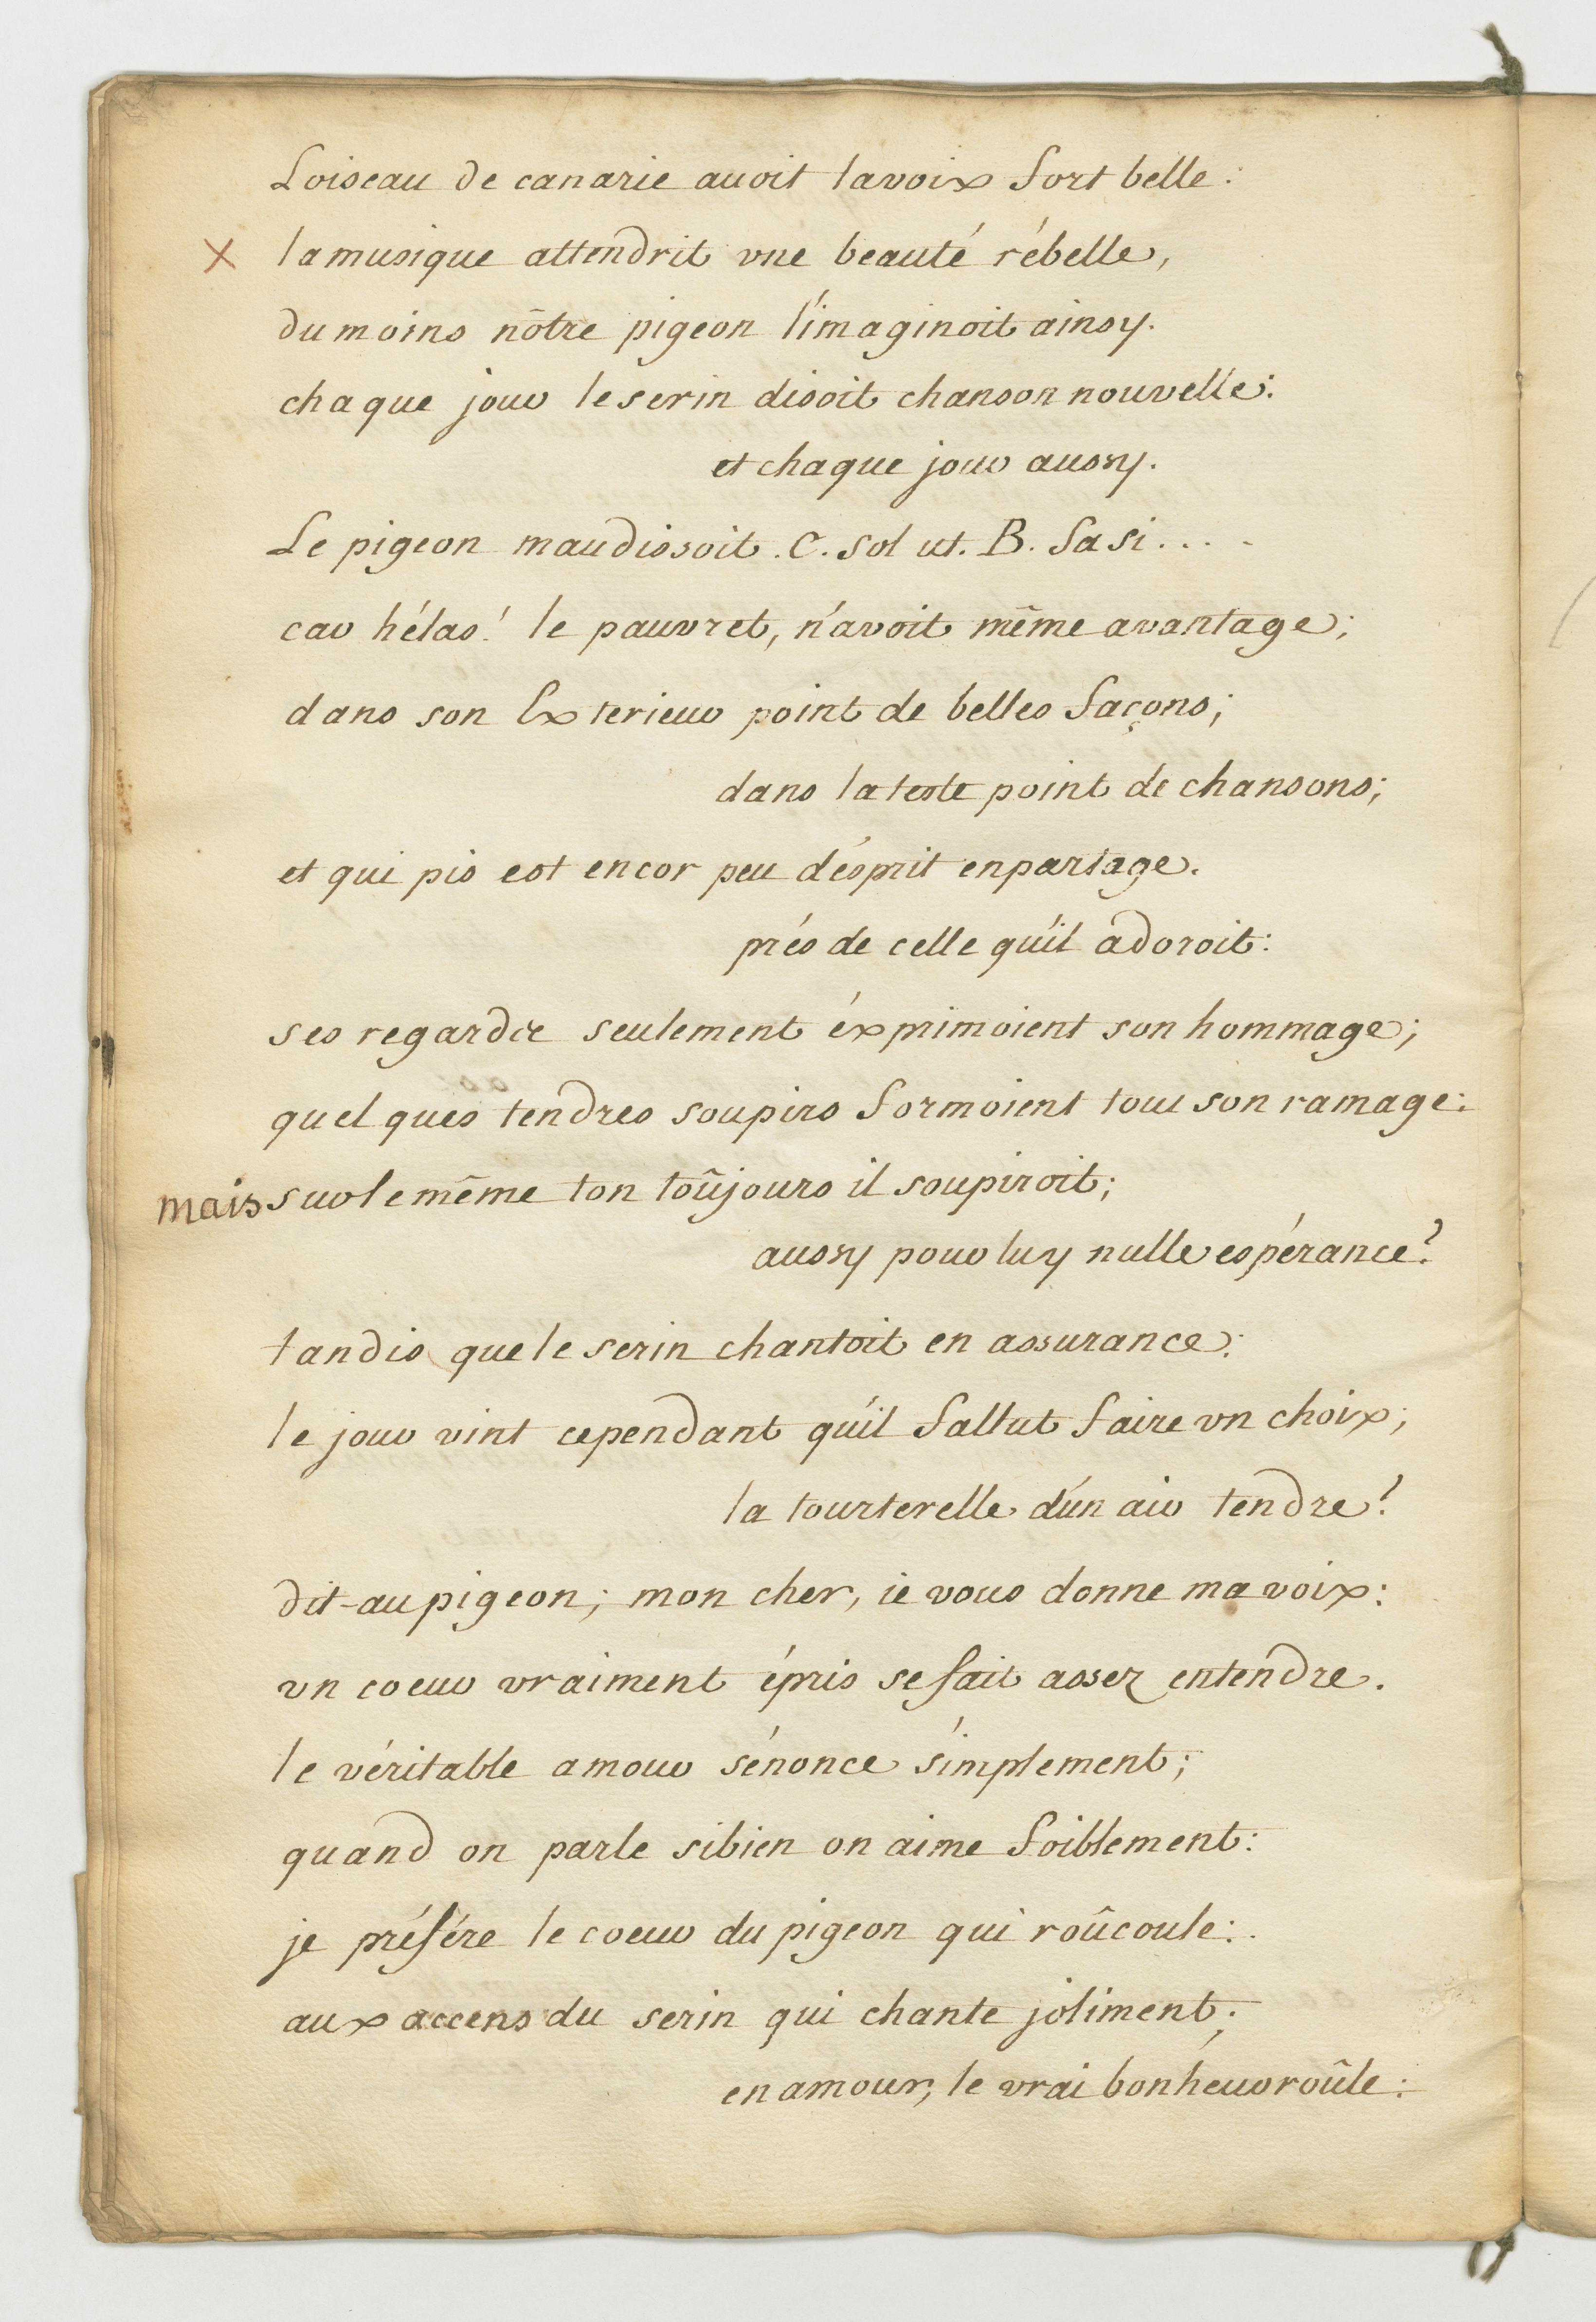 Loiseau de canarie auoit lavoix fort belle:
x la musique attendrit vne beauté rébelle,
du moins nôtre pigeon l'imaginoit ainsy.
chaque jour le serin disoit chanson nouvelle:
et chaque jour aussy.
Le pigeon maudissoit. C. sol ut. B. fa si....
car hélas! le pauvret, n'avoit même avantage;
dans son Exterieur point de belles façons;
dans la teste point de chansons;
et qui pis est encor peu d'ésprit en partage.
prés de celle qu'il adoroit:
ses regards seulement éxprimoient son hommage;
quelques tendres soupirs formoient tout son ramage:
mais sur le même ton toûjours il soupiroit;
aussy pour luy nulle espérance?
tandis que le serin chantoit en assurance:
le jour vint cependant qu'il fallut faire vn choix;
la tourterelle d'un air tendre!
dit-au pigeon; mon cher, ie vous donne ma voix:
vn coeur vraiment épris se fait assez entendre.
le véritable amour s'énonce simplement;
quand on parle si bien on aime foiblement:
je préfére le coeur du pigeon qui roûcoule:
aux accens du serin qui chante joliment;
en amour, le vrai bonheur roûle: